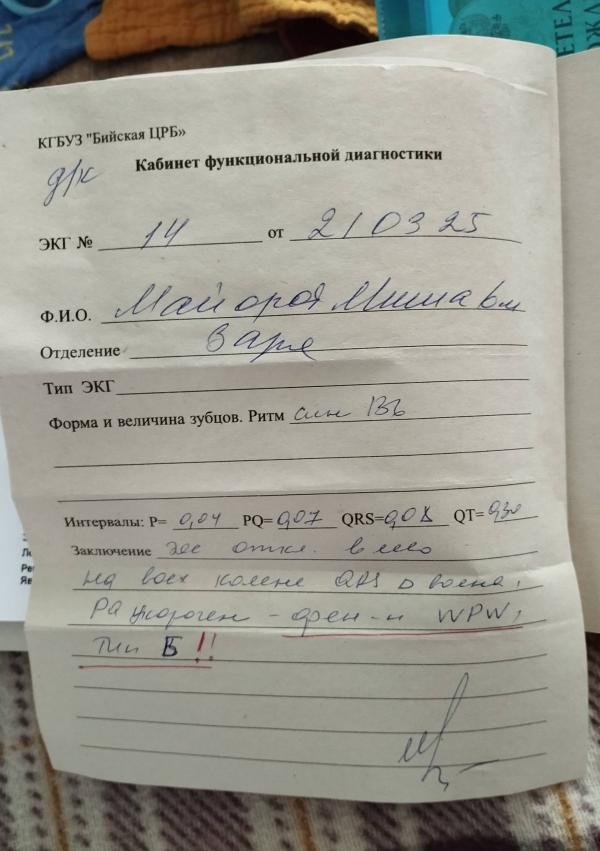 КГБУЗ "Бийская ЦРБ»
д/к
Кабинет функциональной диагностики
ЭКГ № 14 от 21 03 25
Ф.И.О. Майоров Миша 6м
Отделение
Тип ЭКГ
Форма и величина зубцов. Ритм син 136
Интервалы: P= 0,04 PQ= 0,07 QRS= 0,08 QT= 0,30
Заключение ЭОС откл. влево
На всех колене QRS
PQ укорочен - фен-н WPW,
тип Б!!